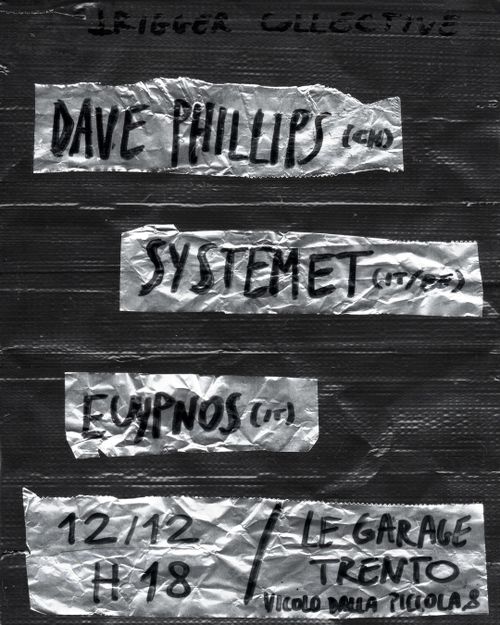 TRIGGER COLLECTIVE
DAVE PHILLIPS (CH)
SYSTEMET (IT/EE)
EUHYPNOS (IT)
12/12 / LE GARAGE
H 18 TRENTO
VICOLO DALLA PICCOLA, 8